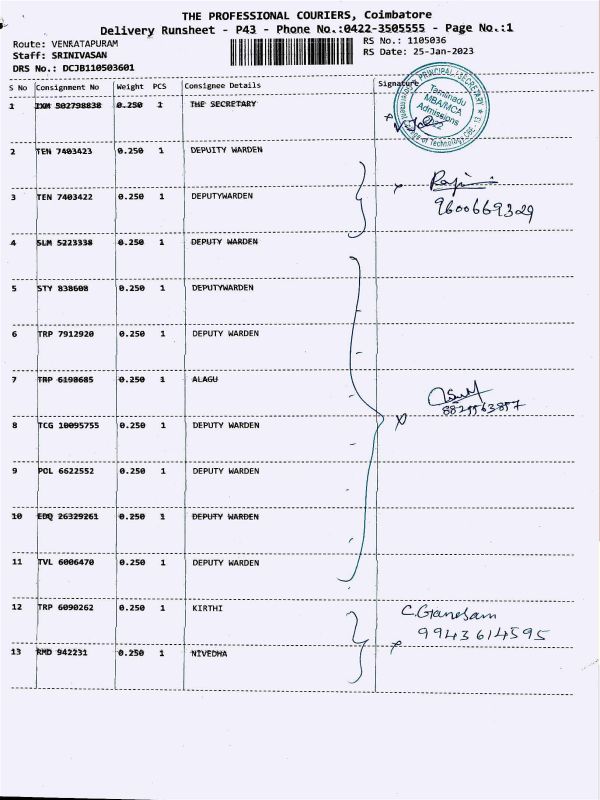 THE PROFESSIONAL COURIERS, Coimbatore
Delivery Runsheet - P43 - Phone No.:0422-3505555 - Page No.:1
Route: VENKATAPURAM RS No.: 1105036
Staff: SRINIVASAN RS Date: 25-Jan-2023
DRS No.: DCJB110503601
S No Consignment No Weight PCS Consignee Details Signature
1 IXM 502798838 0.250 1 THE SECRETARY
PRINCIPAL SECRETARY
Tamilnadu
MBA/MCA
Admissions
2022
of Technology
2 TEN 7403423 0.250 1 DEPUITY WARDEN
3 TEN 7403422 0.250 1 DEPUTYWARDEN
9600669329
4 SLM 5223338 0.250 1 DEPUTY WARDEN
5 STY 838608 0.250 1 DEPUTYWARDEN
6 TRP 7912920 0.250 1 DEPUTY WARDEN
7 TRP 6198685 0.250 1 ALAGU
8 TCG 10095755 0.250 1 DEPUTY WARDEN
9 POL 6622552 0.250 1 DEPUTY WARDEN
10 EDQ 26329261 0.250 1 DEPUTY WARDEN
11 TVL 6006470 0.250 1 DEPUTY WARDEN
12 TRP 6090262 0.250 1 KIRTHI C.Ganesam
9943614595
13 RMD 942231 0.250 1 NIVEDHA